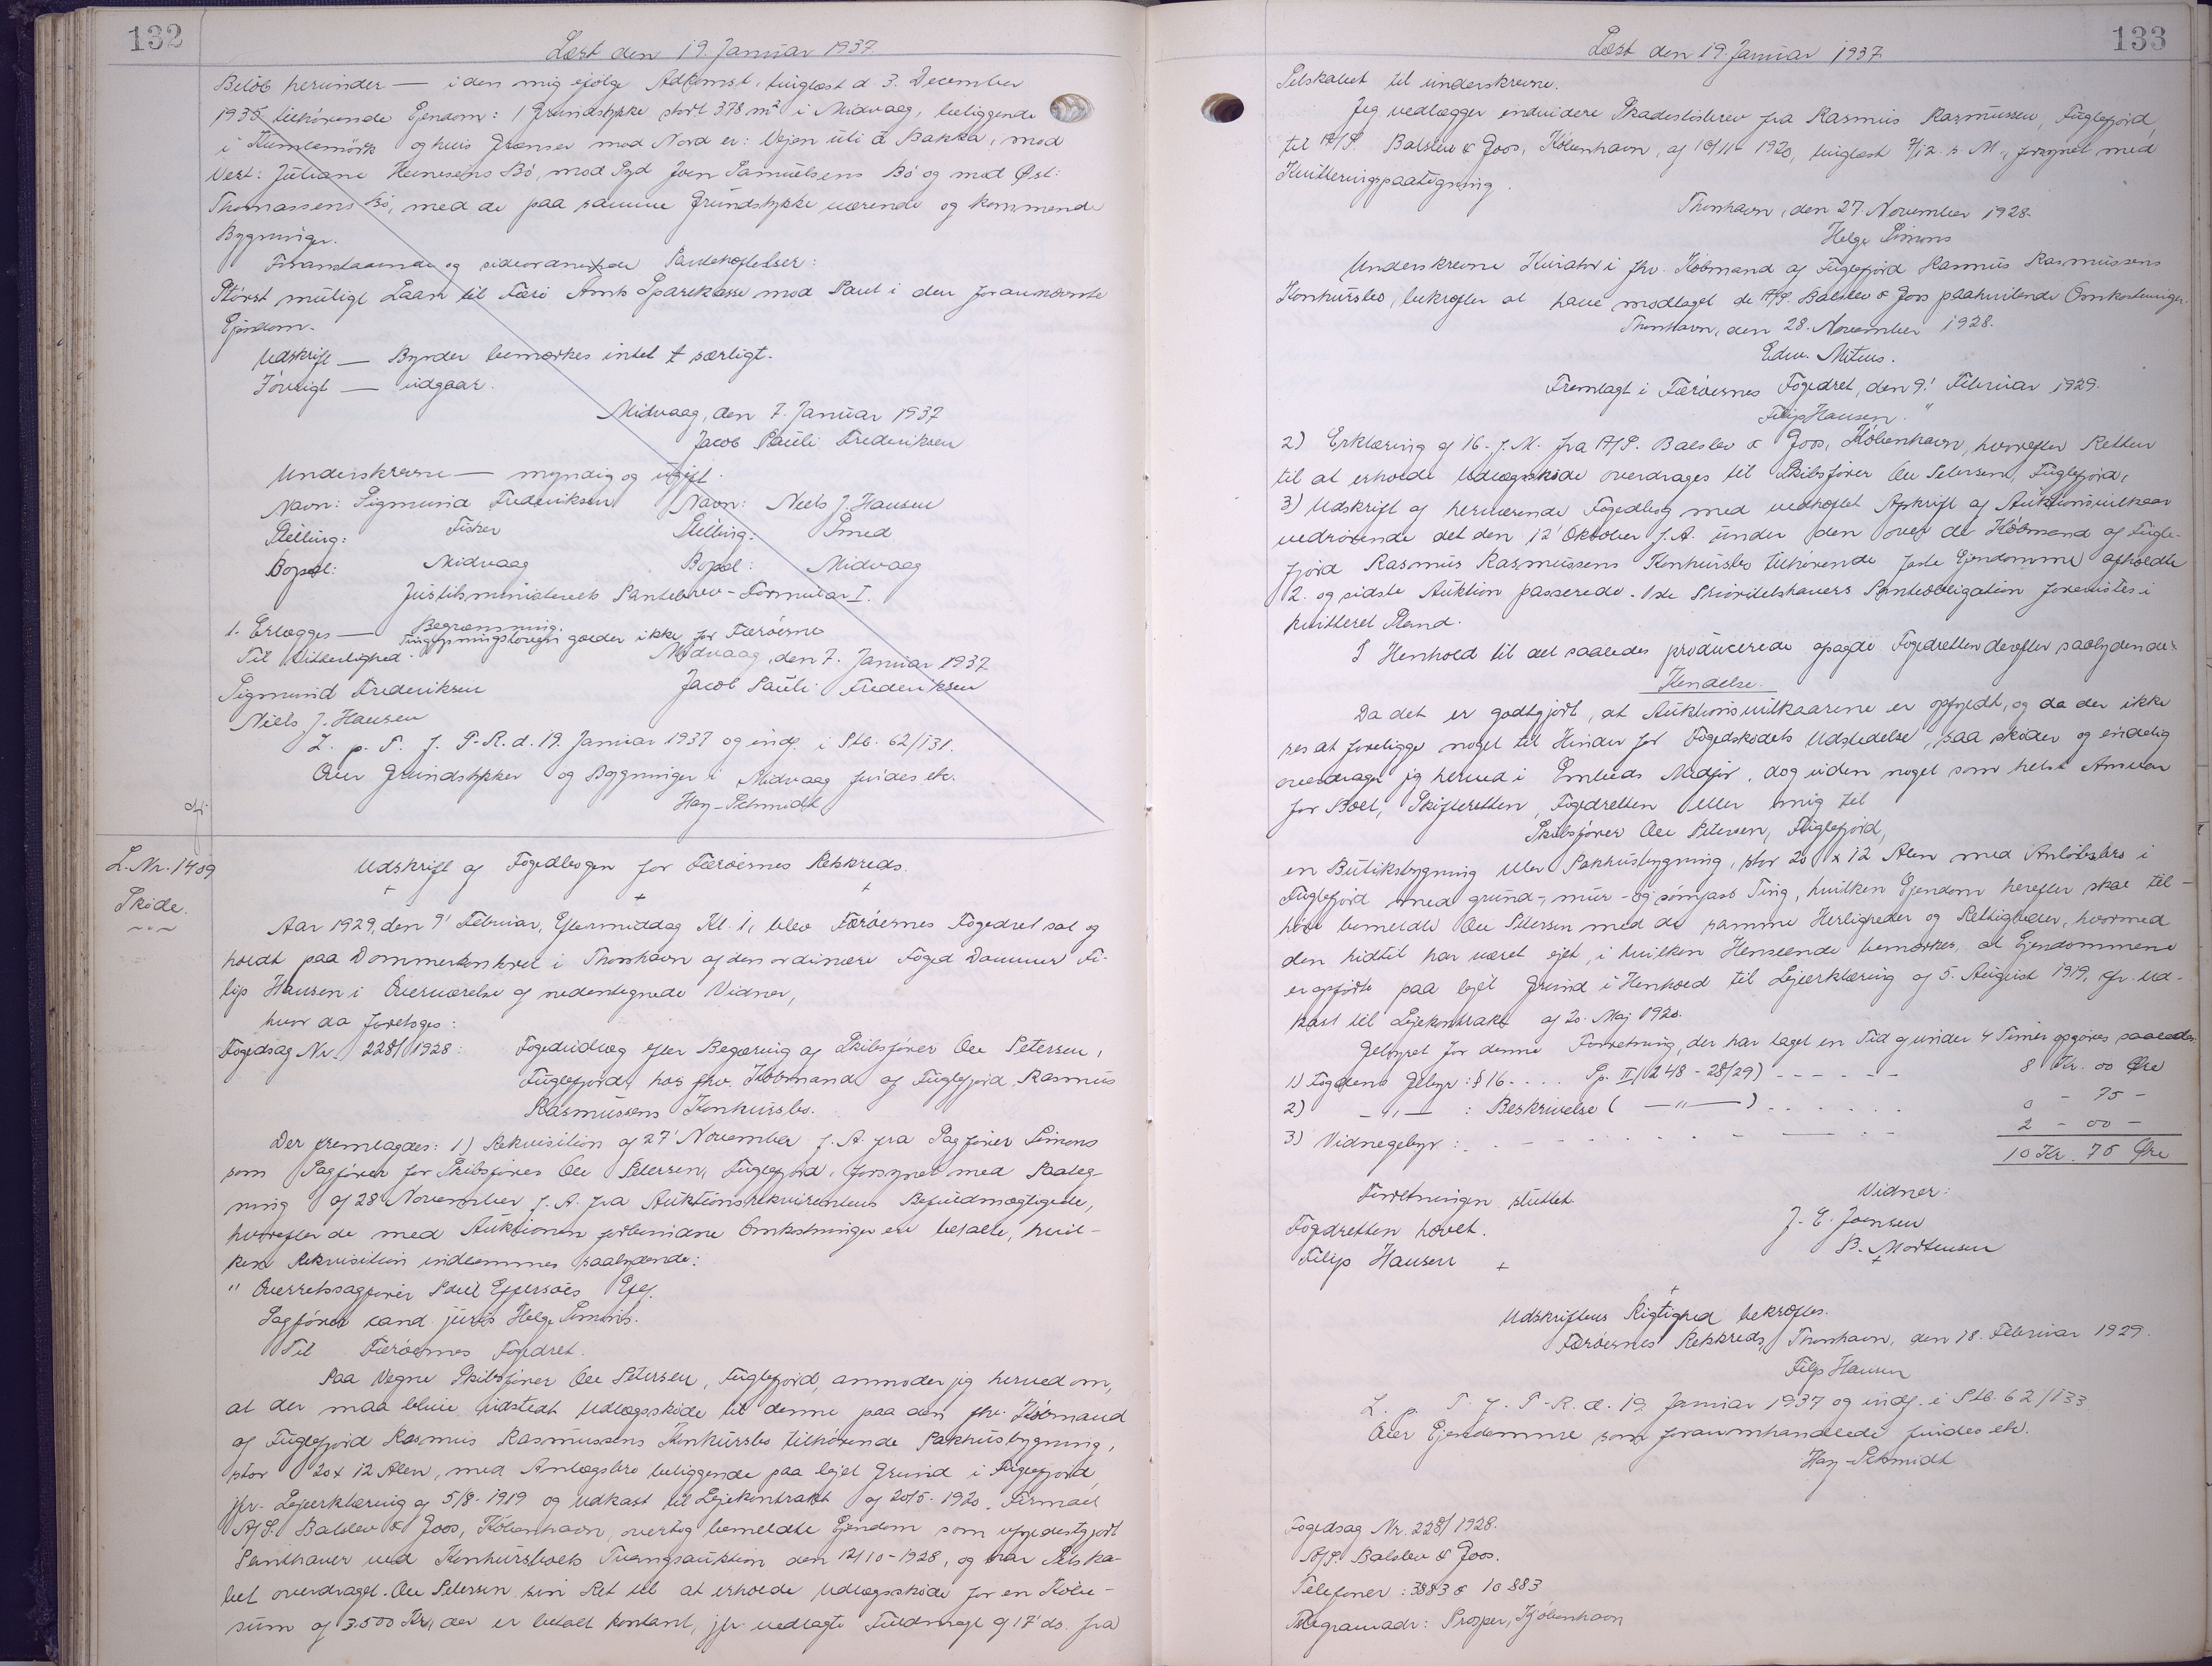 132
Læst den 19. Januar 1937.
Beløb herunder — i den mig ifølge Adkomst, tinglæst d. 3. December
1935 tilhørende Ejendom: 1 Grundstykke stort 378 m² i Midvaag, beliggende
i Kumlemörk og hvis Grænser mod Nord er: Vejen úti á Bakka, mod
Vest: Juliane Heinesens Bó, mod Syd Joen Samuelsens Bó og mod Øst:
Thomassens Bó, med de paa samme Grundstykke værende og kommende
Bygninger.
Foranstaaende og sideordnende Pantehæftelser:
Størst muligt Laan til Færø Amts Sparekasse mod Pant i den forannævnte
Ejendom.
Udskrift — Byrder bemærkes intet særligt.
Iøvrigt — udgaar.
Midvaag, den 7. Januar 1937
Jacob Pauli Frederiksen
Underskrevne — myndig og ugift.
Navn: Sigmund Frederiksen Navn: Niels J. Hansen
Stilling: Fisker Stilling: Smed
Bopæl: Midvaag Bopæl: Midvaag
Justitsministeriets Pantebrev-Formular I.
Begrænsning.
1. Erlægges — Tinglysningsloven gælder ikke for Færøerne
Til Vitterlighed. Midvaag, den 7. Januar 1937
Sigmund Frederiksen Jacob Pauli Frederiksen
Niels J. Hansen
L. p. T. f. F-R. d. 19. Januar 1937 og indf. i Stb. 62/131.
Over Grundstykker og Bygninger i Midvaag findes etc.
Hay-Schmidt
L. Nr. 1409
Skøde.
Udskrift af Fogedbogen for Færøernes Retskreds.
Aar 1929, den 9' Februar, Eftermiddag Kl. 1, blev Færøernes Fogedret sat og
holdt paa Dommerkontoret i Thorshavn af den ordinære Foged Dommer Fi-
lip Hansen i Overværelse af nedentegnede Vidner,
hvor da foretoges:
Fogedsag Nr. 228/1928: Fogedudlæg efter Begæring af Skibsfører Ole Petersen,
Fuglefjord, hos fhv. Købmand af Fuglefjord Rasmus
Rasmussens Konkursbo.
Der fremlagdes: 1) Rekvisition af 27' November f. A. fra Sagfører Simons
som Sagfører for Skibsfører Ole Petersen, Fuglefjord, forsynet med Paateg-
ning af 28' November f. A. fra Auktionsrekvirentens Befuldmægtigede,
hvorefter de med Auktionen forbundne Omkostninger ere betalte, hvil-
ken Rekvisition indlemmes saalydende:
" Overretssagfører Poul Effersøes Eftf.
Sagfører cand. juris Helge Simons.
Til Færøernes Fogedret.
Paa Vegne Skibsfører Ole Petersen, Fuglefjord, anmoder jeg herved om,
at der maa blive udstedt Udlægsskøde til denne paa den fhv. Købmand
af Fuglefjord Rasmus Rasmussens Konkursbo tilhørende Pakhusbygning,
stor 20 x 12 Alen, med Anlægsbro beliggende paa lejet Grund i Fuglefjord,
jfr. Lejeerklæring af 5/8-1919 og Udkast til Lejekontrakt af 20/5-1920. Firmaet
A/S. Balslev & Joos, København, overtog bemeldte Ejendom som ufyldestgjort
Panthaver ved Konkursboets Tvangsauktion den 12/10-1928, og har Selska-
bet overdraget Ole Petersen sin Ret til at erholde Udlægsskøde for en Købe-
sum af 3.500 Kr, der er betalt kontant, jfr. vedlagte Fuldmagt af 17' ds. fra
133
Læst den 19. Januar 1937
Selskabet til underskrevne.
Jeg vedlægger endvidere Skadesløsbrev fra Rasmus Rasmussen, Fuglefjord,
til A/S. Balslev & Joos, København, af 18/11 1920, tinglæst 7/12 s. M., forsynet med
Kvitteringspaategning.
Thorshavn, den 27 November 1928.
Helge Simons
Underskrevne Kurator i fhv. Købmand af Fuglefjord Rasmus Rasmussens
Konkursbo, bekræfter at have modtaget de A/S. Balslev & Joos paahvilende Omkostninger.
Thorshavn, den 28. November 1928.
Edw. Mitens.
Fremlagt i Færøernes Fogedret, den 9' Februar 1929.
Filip Hansen. "
2) Erklæring af 16. f. M. fra A/S. Balslev & Joos, København, hvorefter Retten
til at erholde Udlægsskøde overdrages til Skibsfører Ole Petersen, Fuglefjord,
3) Udskrift af herværende Fogedbog med vedhæftet Afskrift af Auktionsvilkaar
vedrørende det den 12' Oktober f. A. under den over de Købmand af Fugle-
fjord Rasmus Rasmussens Konkursbo tilhørende faste Ejendomme afholdte
2. og sidste Auktion passerede. 1ste Prioritetshavers Panteobligation forevistes i
kvitteret Stand.
I Henhold til det saaledes producerede afsagde Fogedretten derefter saalydende
Kendelse.
Da det er godtgjort, at Auktionsvilkaarene er opfyldt, og da der ikke
ses at foreligge noget til Hinder for Fogedskødets Udstedelse, saa skøder og endelig
overdrager jeg herved i Embeds Medfør, dog uden noget som helst Ansvar
for Boet, Skifteretten, Fogedretten eller mig til
Skibsfører Ole Petersen, Fuglefjord,
en Butiksbygning eller Pakhusbygning, stor 20 x 12 Alen med Anløbsbro i
Fuglefjord med grund-, mur- og sømfast Ting, hvilken Ejendom herefter skal til-
høre bemeldte Ole Petersen med de samme Herligheder og Rettigheder, hvormed
den hidtil har været ejet, i hvilken Henseende bemærkes, at Ejendommene
er opførte paa lejet Grund i Henhold til Lejeerklæring af 5. August 1919, jfr. Ud-
kast til Lejekontrakt af 20. Maj 1920.
Gebyret for denne Forretning, der har taget en Tid af under 4 Timer opgøres saaledes.
1) Fogedens Gebyr: § 16 .... Sp. II/248-28/29) ------ 8 Kr. 00 Øre
2) —"— : Beskrivelse ( —"— ) ...... 0 - 75 -
3) Vidnegebyr: ------ 2 - 00 -
10 Kr. 75 Øre
Forretningen sluttet. Vidner:
Fogedretten hævet. J. E. Joensen
Filip Hansen B. Mortensen
Udskriftens Rigtighed bekræftes.
Færøernes Retskreds, Thorshavn, den 18. Februar 1929.
Filip Hansen
L. p. T. f. F-R. d. 19. Januar 1937 og indf. i Stb. 62/133
Over Ejendomme som foranmhandlede findes etc.
Hay-Schmidt
Fogedsag Nr. 228/1928.
A/S. Balslev & Joos.
Telefoner: 3883 & 10883
Telegramadr: Prosper, Kjøbenhavn